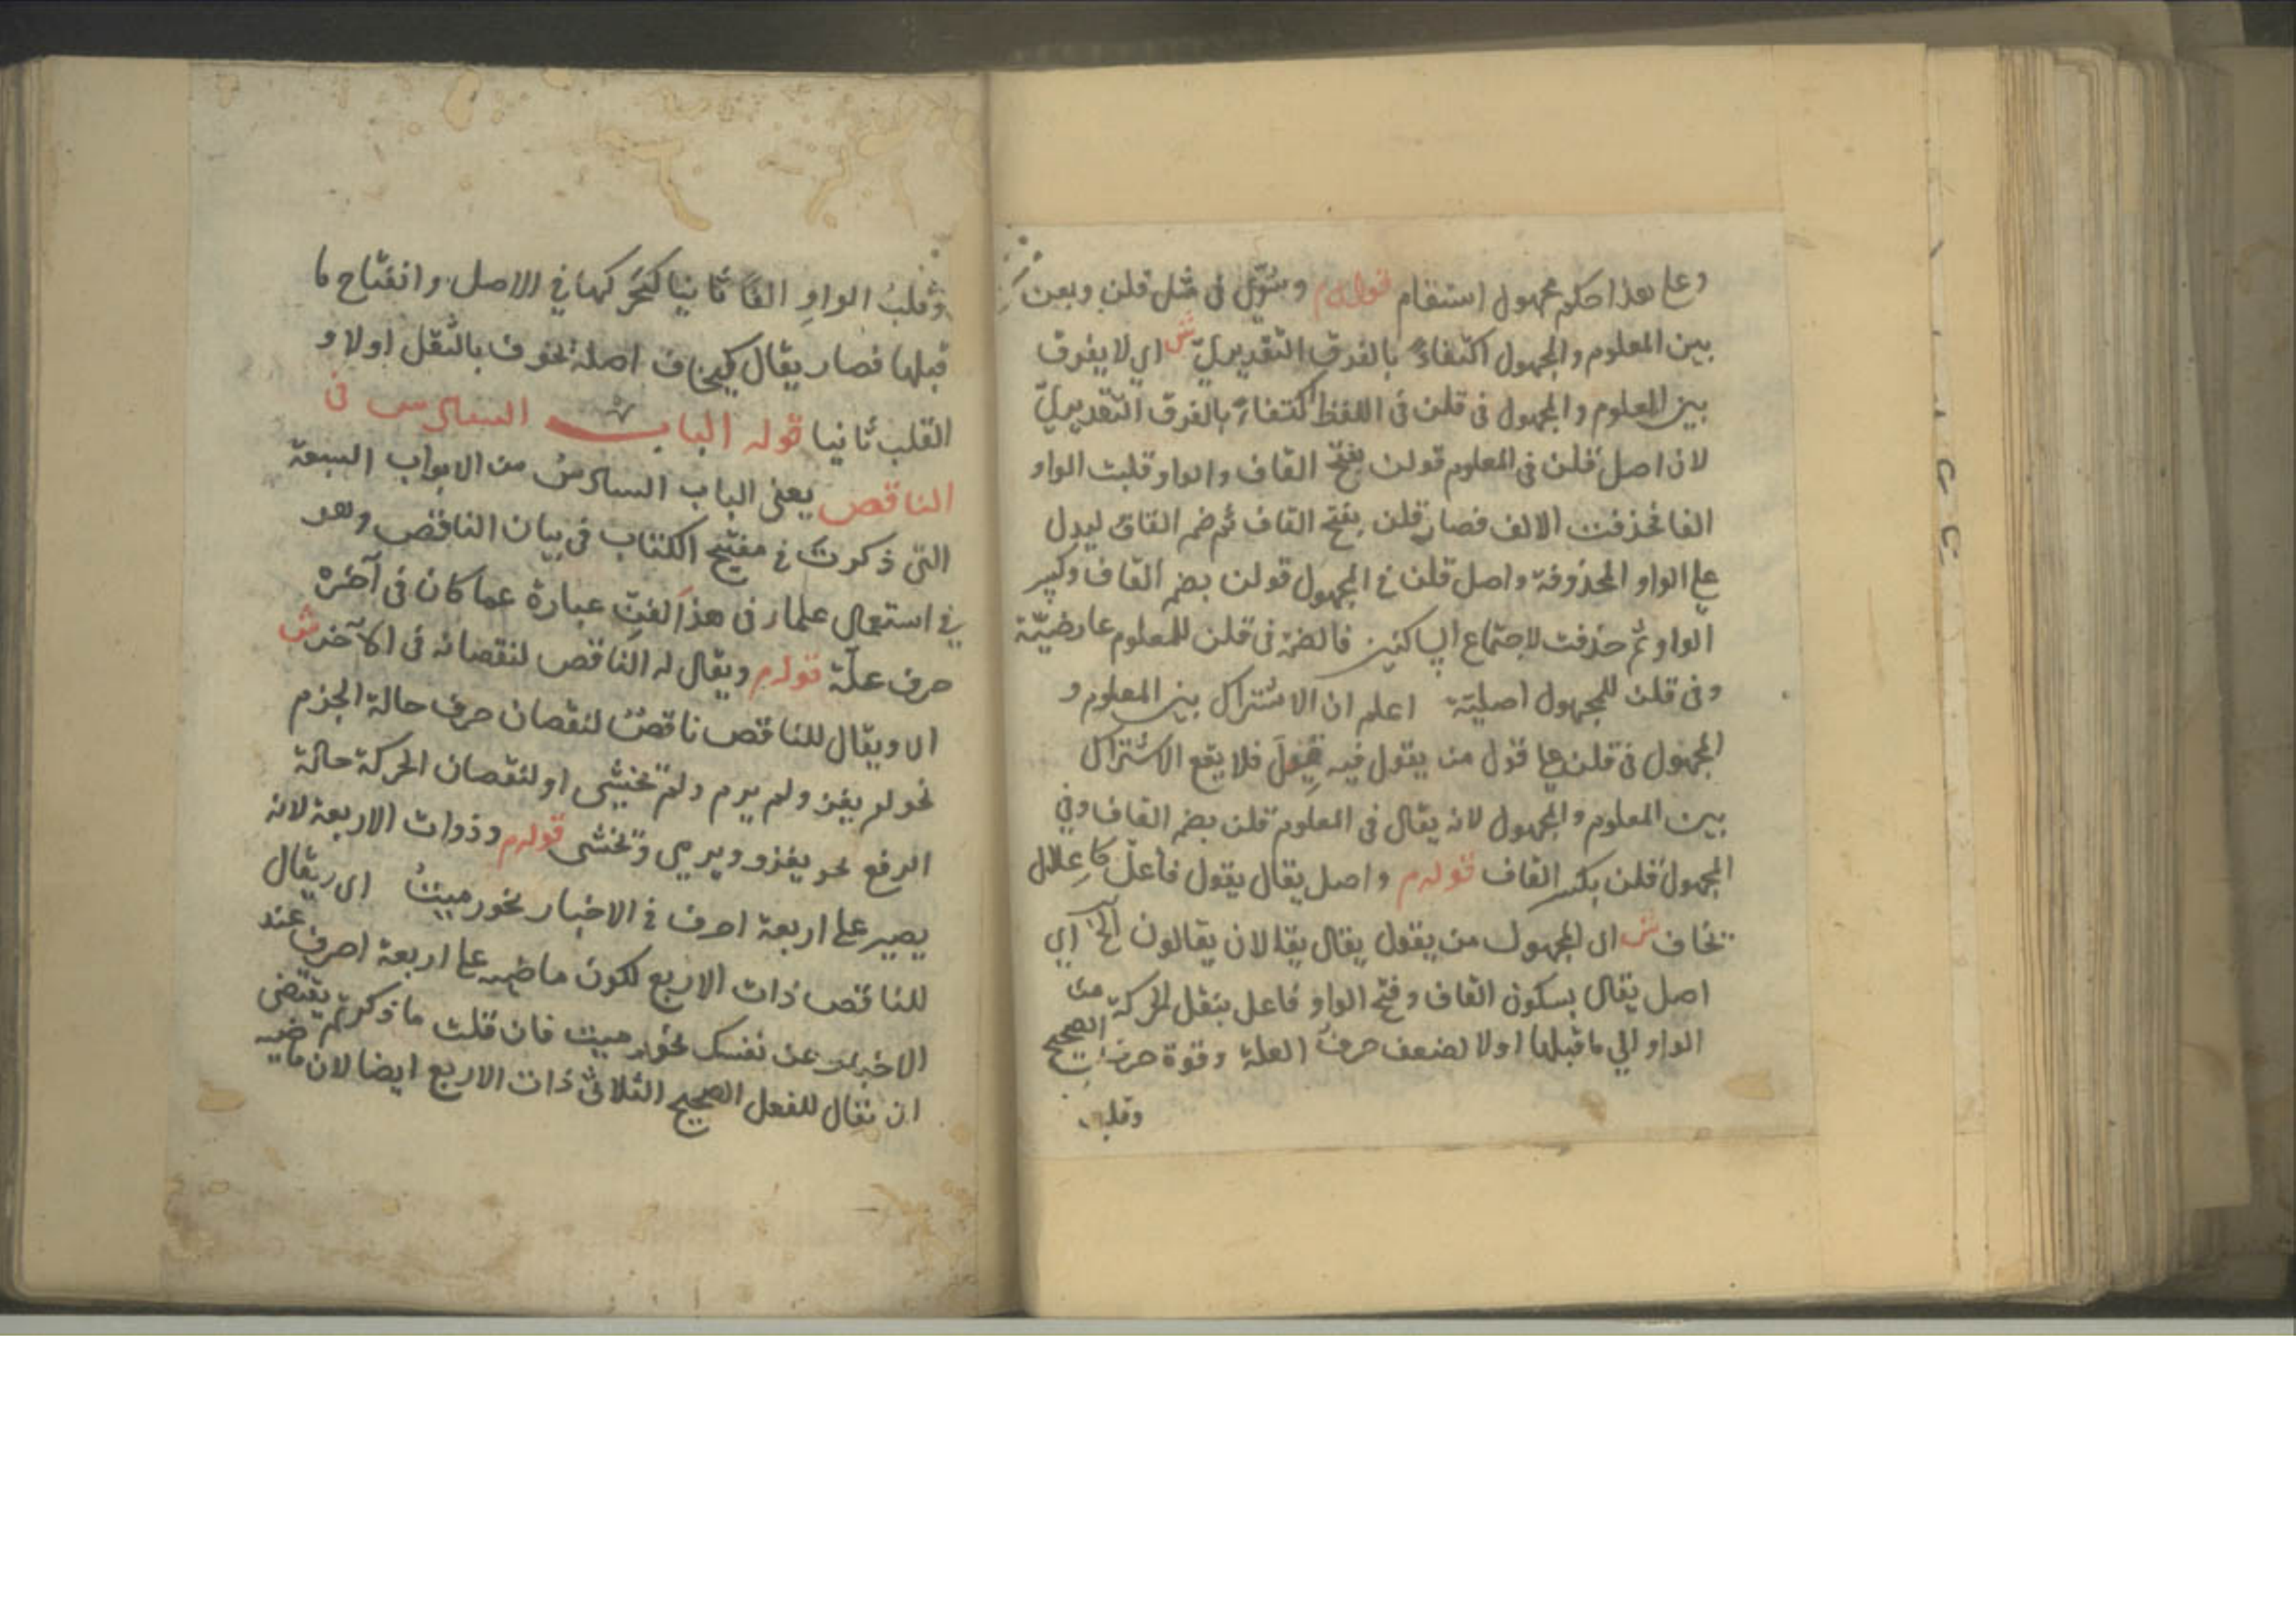 وعلى هذا حكم مجهول استقام قوله م وسُوِّي في مثل قلن وبعن
بين المعلوم والمجهول اكتفاءً بالفرق التقديريّ ش اي لا يفرق
بين المعلوم والمجهول في قلن في اللفظ اكتفاءً بالفرق التقديريّ
لان اصل قلن في المعلوم قولن بفتح القاف والواو قلبت الواو
الفا فحذفت الالف فصار قلن بفتح القاف ثم ضم القاف ليدل
على الواو المحذوفة واصل قلن في المجهول قولن بضم القاف وكسر
الواو ثم حذفت لاجتماع الساكنين فالضمة في قلن للمعلوم عارضيّة
وفي قلن للمجهول اصليّة اعلم ان الاشتراك بين المعلوم و
المجهول في قلن على قول من يقول فيه قِيلَ فلا يقع الاشتراك
بين المعلوم والمجهول لانه يقال في المعلوم قلن بضم القاف وفي
المجهول قلن بكسر القاف قوله م واصل يقال يقول فاعلّ كاعلال
يخاف ش اي المجهول من يقول يقال يقالان يقالون الخ اي
اصل يقال بسكون القاف وفتح الواو فاعل بنقل الحركة من
الواو الي ما قبلها اولا لضعف حرف العلة وقوة حرف الصحيح
وقلب
وقلبُ الواوِ الفًا ثانيا لتحركها في الاصل وانفتاح ما
قبلها فصار يقال كيخاف اصله يخوف بالنقل اولا و
القلب ثانيا قوله الباب السادس في
الناقص يعني الباب السادسُ من الابواب السبعة
التي ذكرت في مفتتح الكتاب في بيان الناقص وهو
في استعمال علماء في هذا الفنّ عبارة عما كان في آخره
حرف علّة قوله م ويقال له الناقص لنقصانه في الآخر ش
الا ويقال للناقص ناقصٌ لنقصان حرف حالة الجزم
نحو لم يغز ولم يرم ولم تخشى او لنقصان الحركة حالة
الرفع نحو يغزو ويرمي وتخشى قوله م وذوات الاربعة لانه
يصير على اربعة احرف في الاخبار نحو رميتُ اي يقال
للناقص ذات الاربع لكون ماضيه على اربعة احرف عند
الاخبار عن نفسك نحو رميت فان قلت ما ذكرتم يقتضي
ان نقال للفعل الصحيح الثلاثي ذات الاربع ايضا لان ماضيه